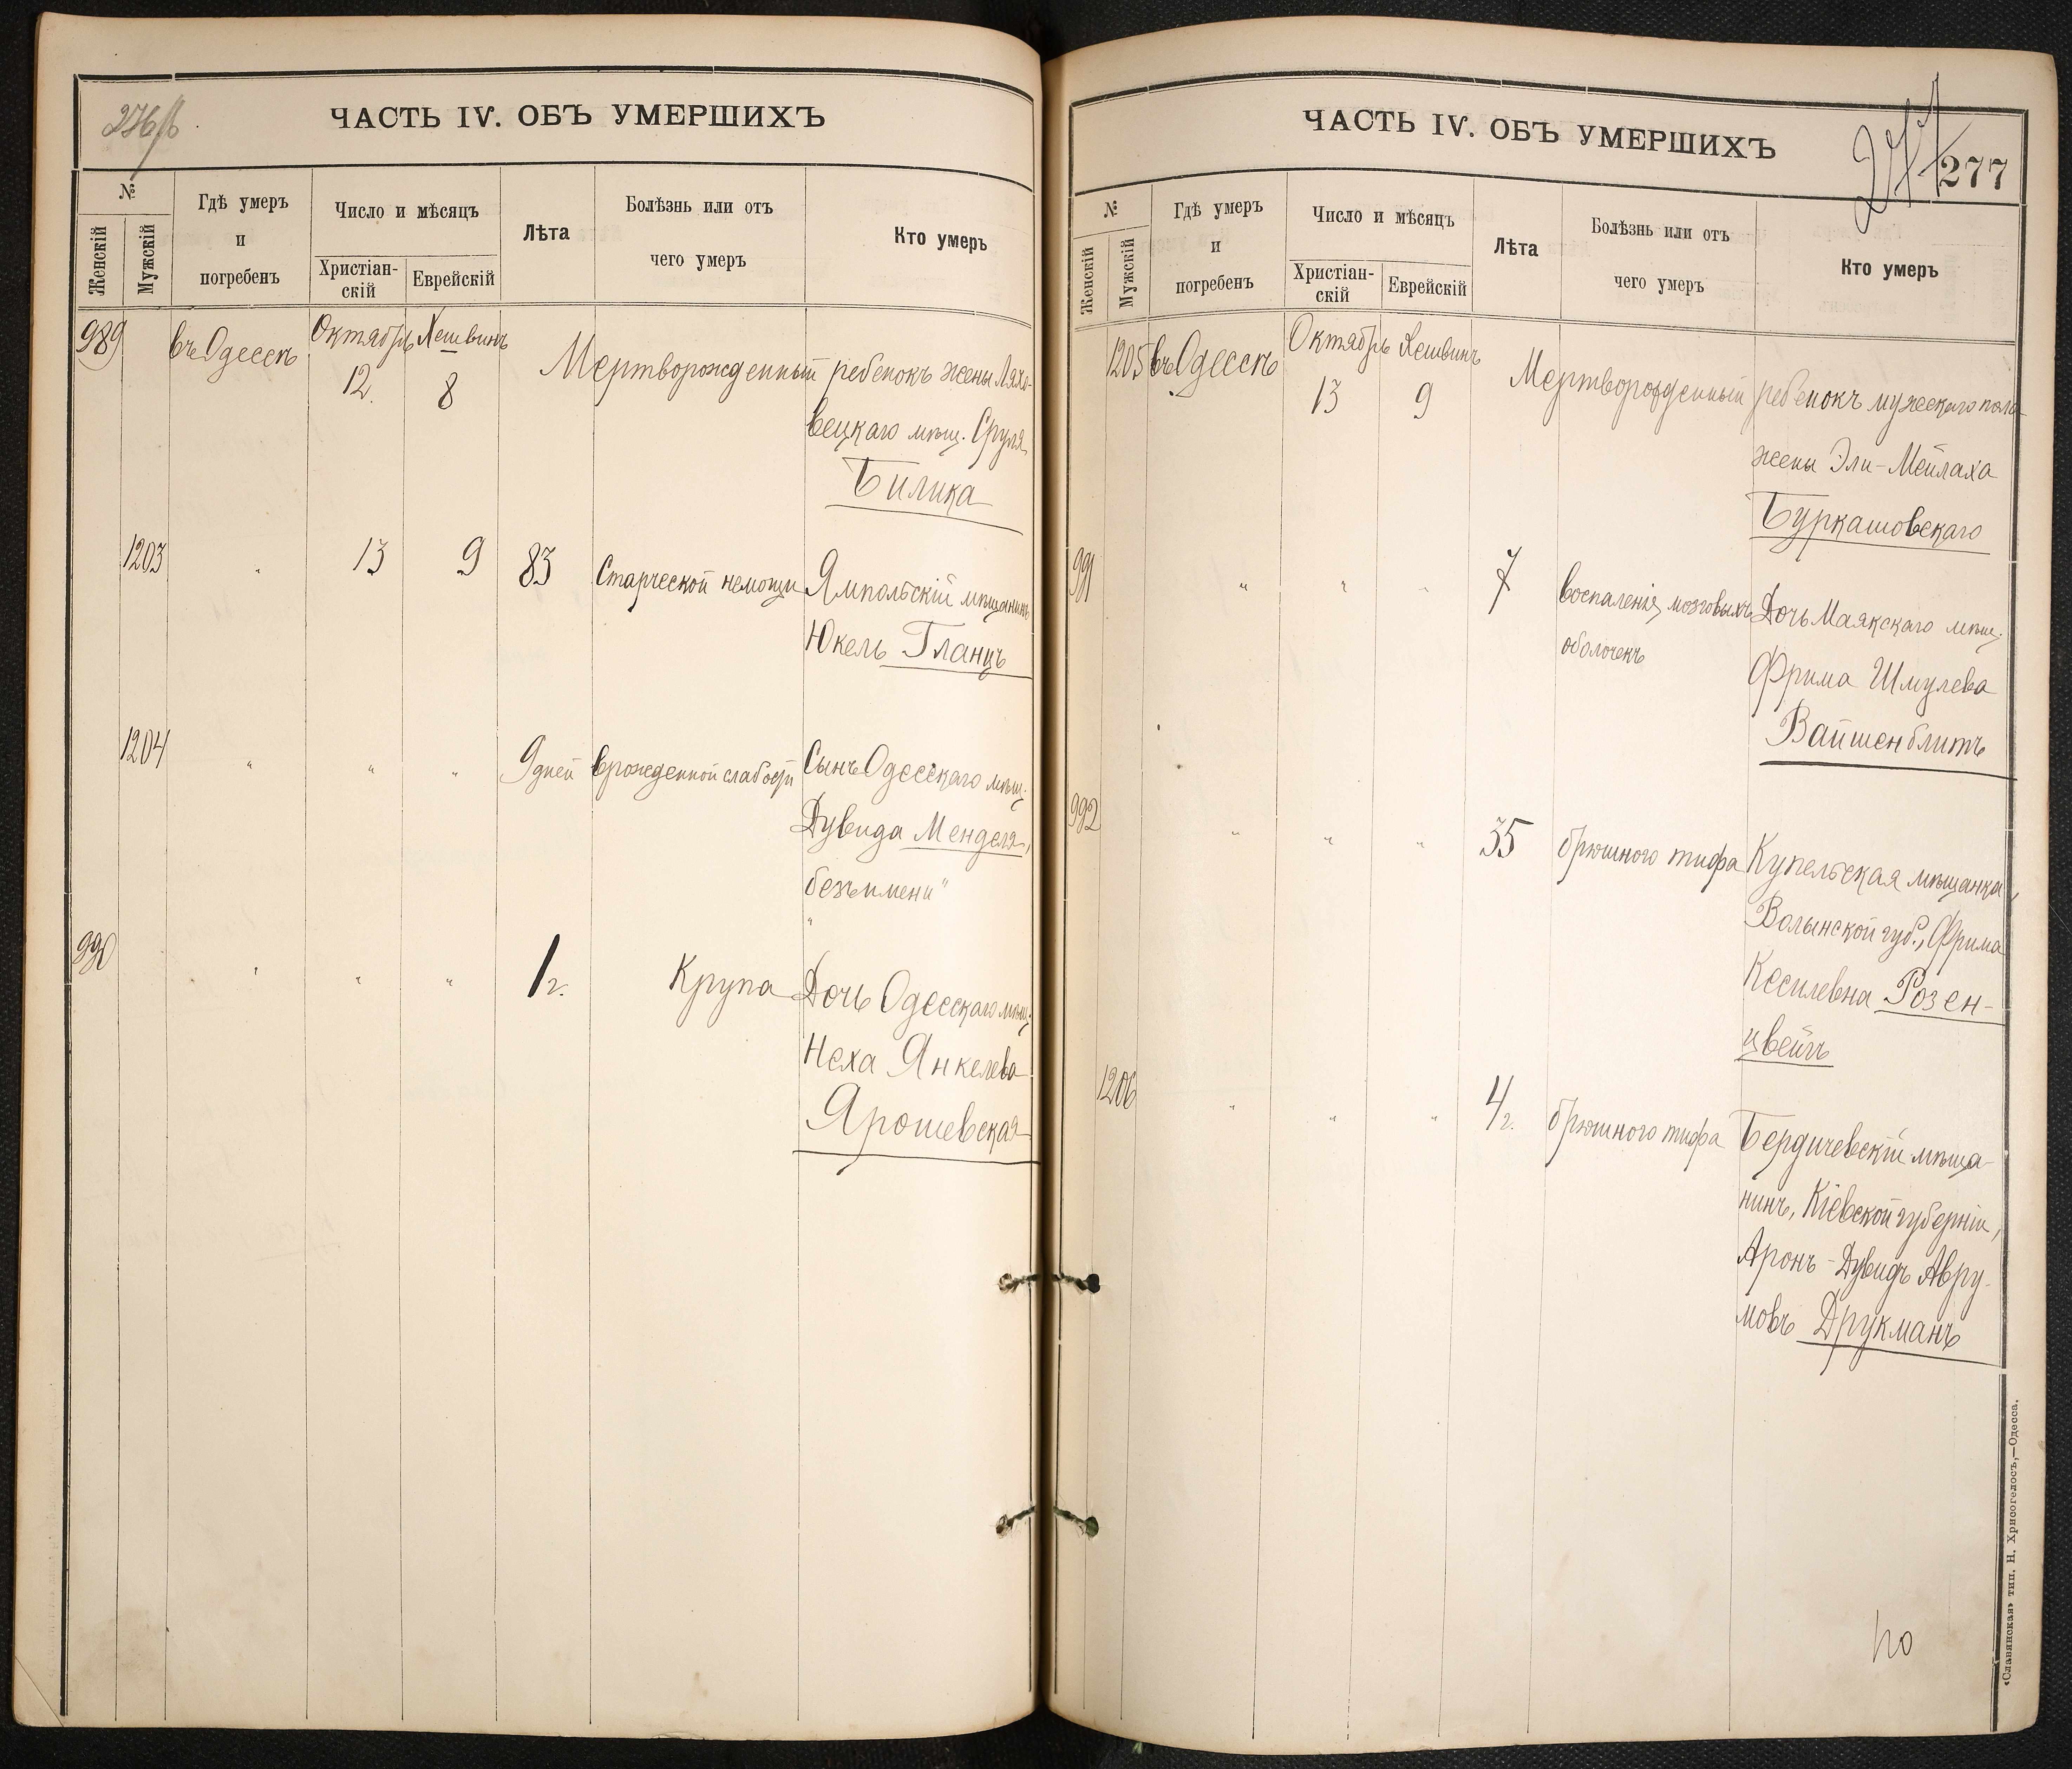 276/б
ЧАСТЬ IV. ОБЪ УМЕРШИХЪ
№
Женскій
Мужскій
Гдѣ умеръ
и
погребенъ
Число и мѣсяцъ
Христіан-
скій
Еврейскій
Лѣта
Болѣзнь или отъ
чего умеръ
Кто умеръ
989 въ Одессѣ Октябрь Хешвинъ
12 8
Мертворожденный ребенокъ жены Ляхо-
вецкаго мѣщ. Сруля
Билика
1203 " 13 9 83 Старческой немощи Ямпольскій мѣщанинъ
Юкель Гланцъ
1204 " " " 9 дней врожденной слабости Сынъ Одесскаго мѣщ.
Дувида Менделя,
безъ имени"
"
990 " " " 1 г. Крупа Дочь Одесскаго мѣщ.
Неха Янкелева
Ярошевская
ЧАСТЬ IV. ОБЪ УМЕРШИХЪ
277
277
№
Женскій
Мужскій
Гдѣ умеръ
и
погребенъ
Число и мѣсяцъ
Христіан-
скій
Еврейскій
Лѣта
Болѣзнь или отъ
чего умеръ
Кто умеръ
1205 въ Одессѣ Октябрь Хешвинъ
13 9
Мертворожденный ребенокъ мужескаго пола
жены Эли-Мейлаха
Буркашовскаго
991 " " " 7 воспаленія мозговыхъ Дочь Маякскаго мѣщ.
оболочекъ
Фрима Шмулева
Вайшенблитъ
992 " " " 35 брюшного тифа Купельская мѣщанка,
Волынской губ., Фрима
Кесилевна Розен-
цвейгъ
1206 " " " 4 г. брюшного тифа Бердичевскій мѣща-
нинъ, Кіевской губерніи,
Аронъ-Дувидъ Авру-
мовъ Друкманъ
«Славянская» тип. Н. Хрисогелосъ,—Одесса.